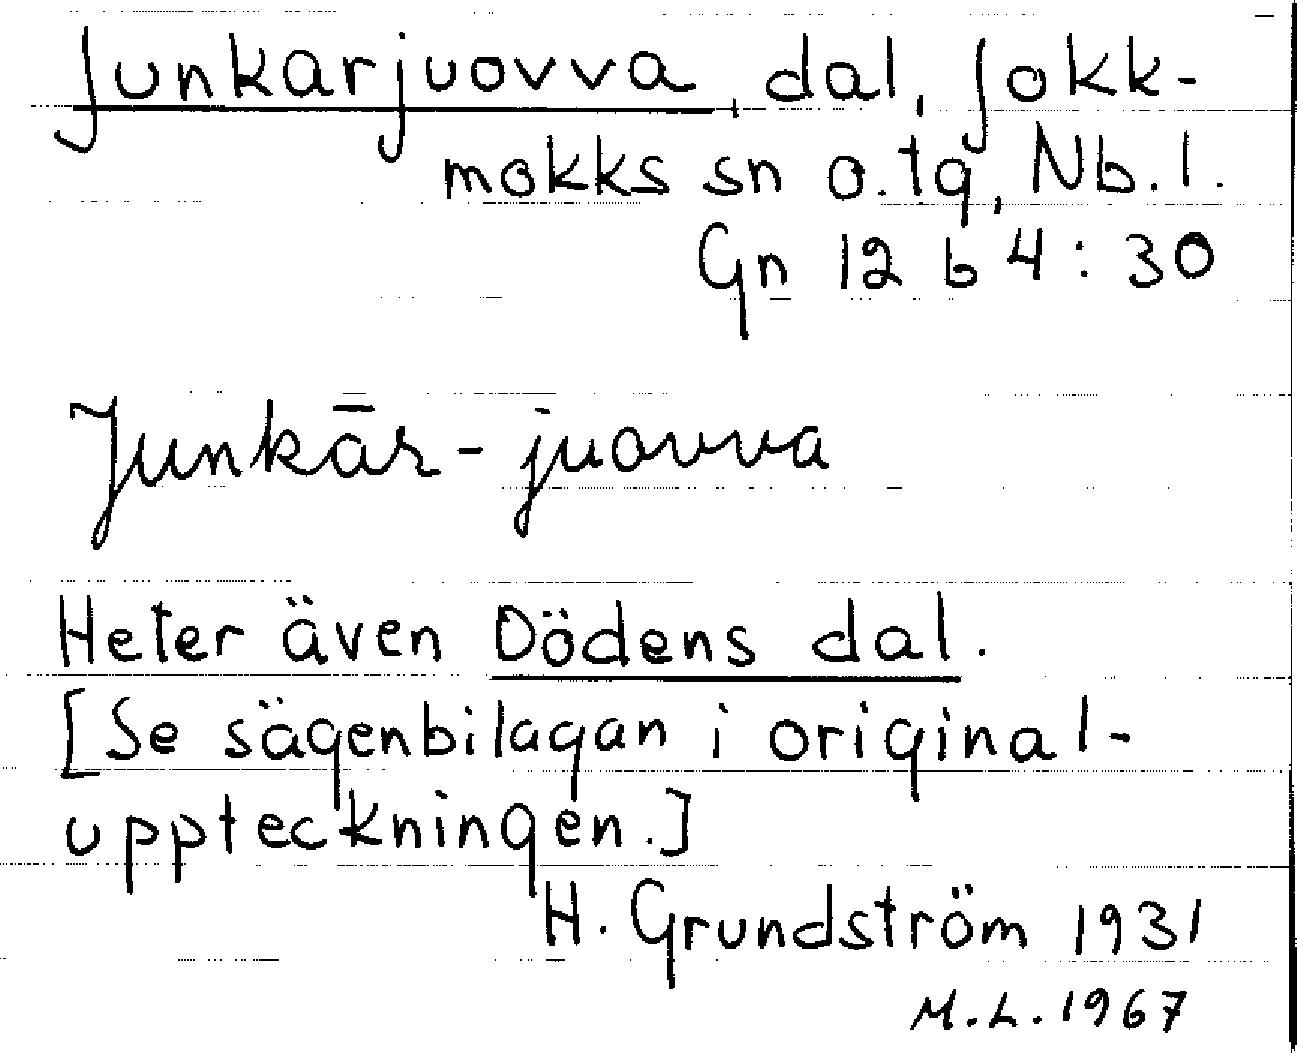 Junkarjuovva, dal, Jokk-
mokks sn o. tg, Nb. l.
Gn 12 b 4 : 30
Junkār-juovva
Heter även Dödens dal.
[Se sägenbilagan i original-
uppteckningen.]
H. Grundström 1931
M.L. 1967